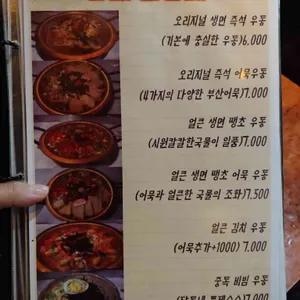 오리지널 생면 즉석 우동
(기본에 충실한 우동)6,000
오리지널 즉석 어묵우동
(4가지의 다양한 부산어묵)7,000
얼큰 생면 땡초 우동
(시원칼칼한국물이 일품)7,000
얼큰 생면 땡초 어묵 우동
(어묵과 얼큰한 국물의 조화)7,500
얼큰 김치 우동
(어묵추가+1000) 7,000
중독 비빔 우동